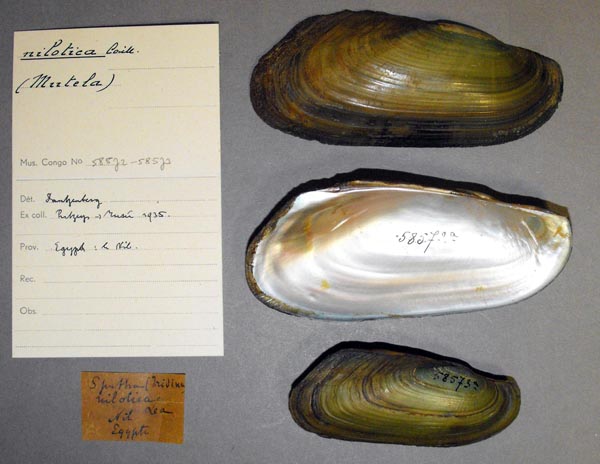 nilotica Caill.
(Mutela)
Mus. Congo No 58572-58573
Dét.
Ex coll. 1935.
Prov. Egypte: le Nil.
Rec.
Obs.
Spatha
nilotica
Nil Lea
Egypte
58572
58573